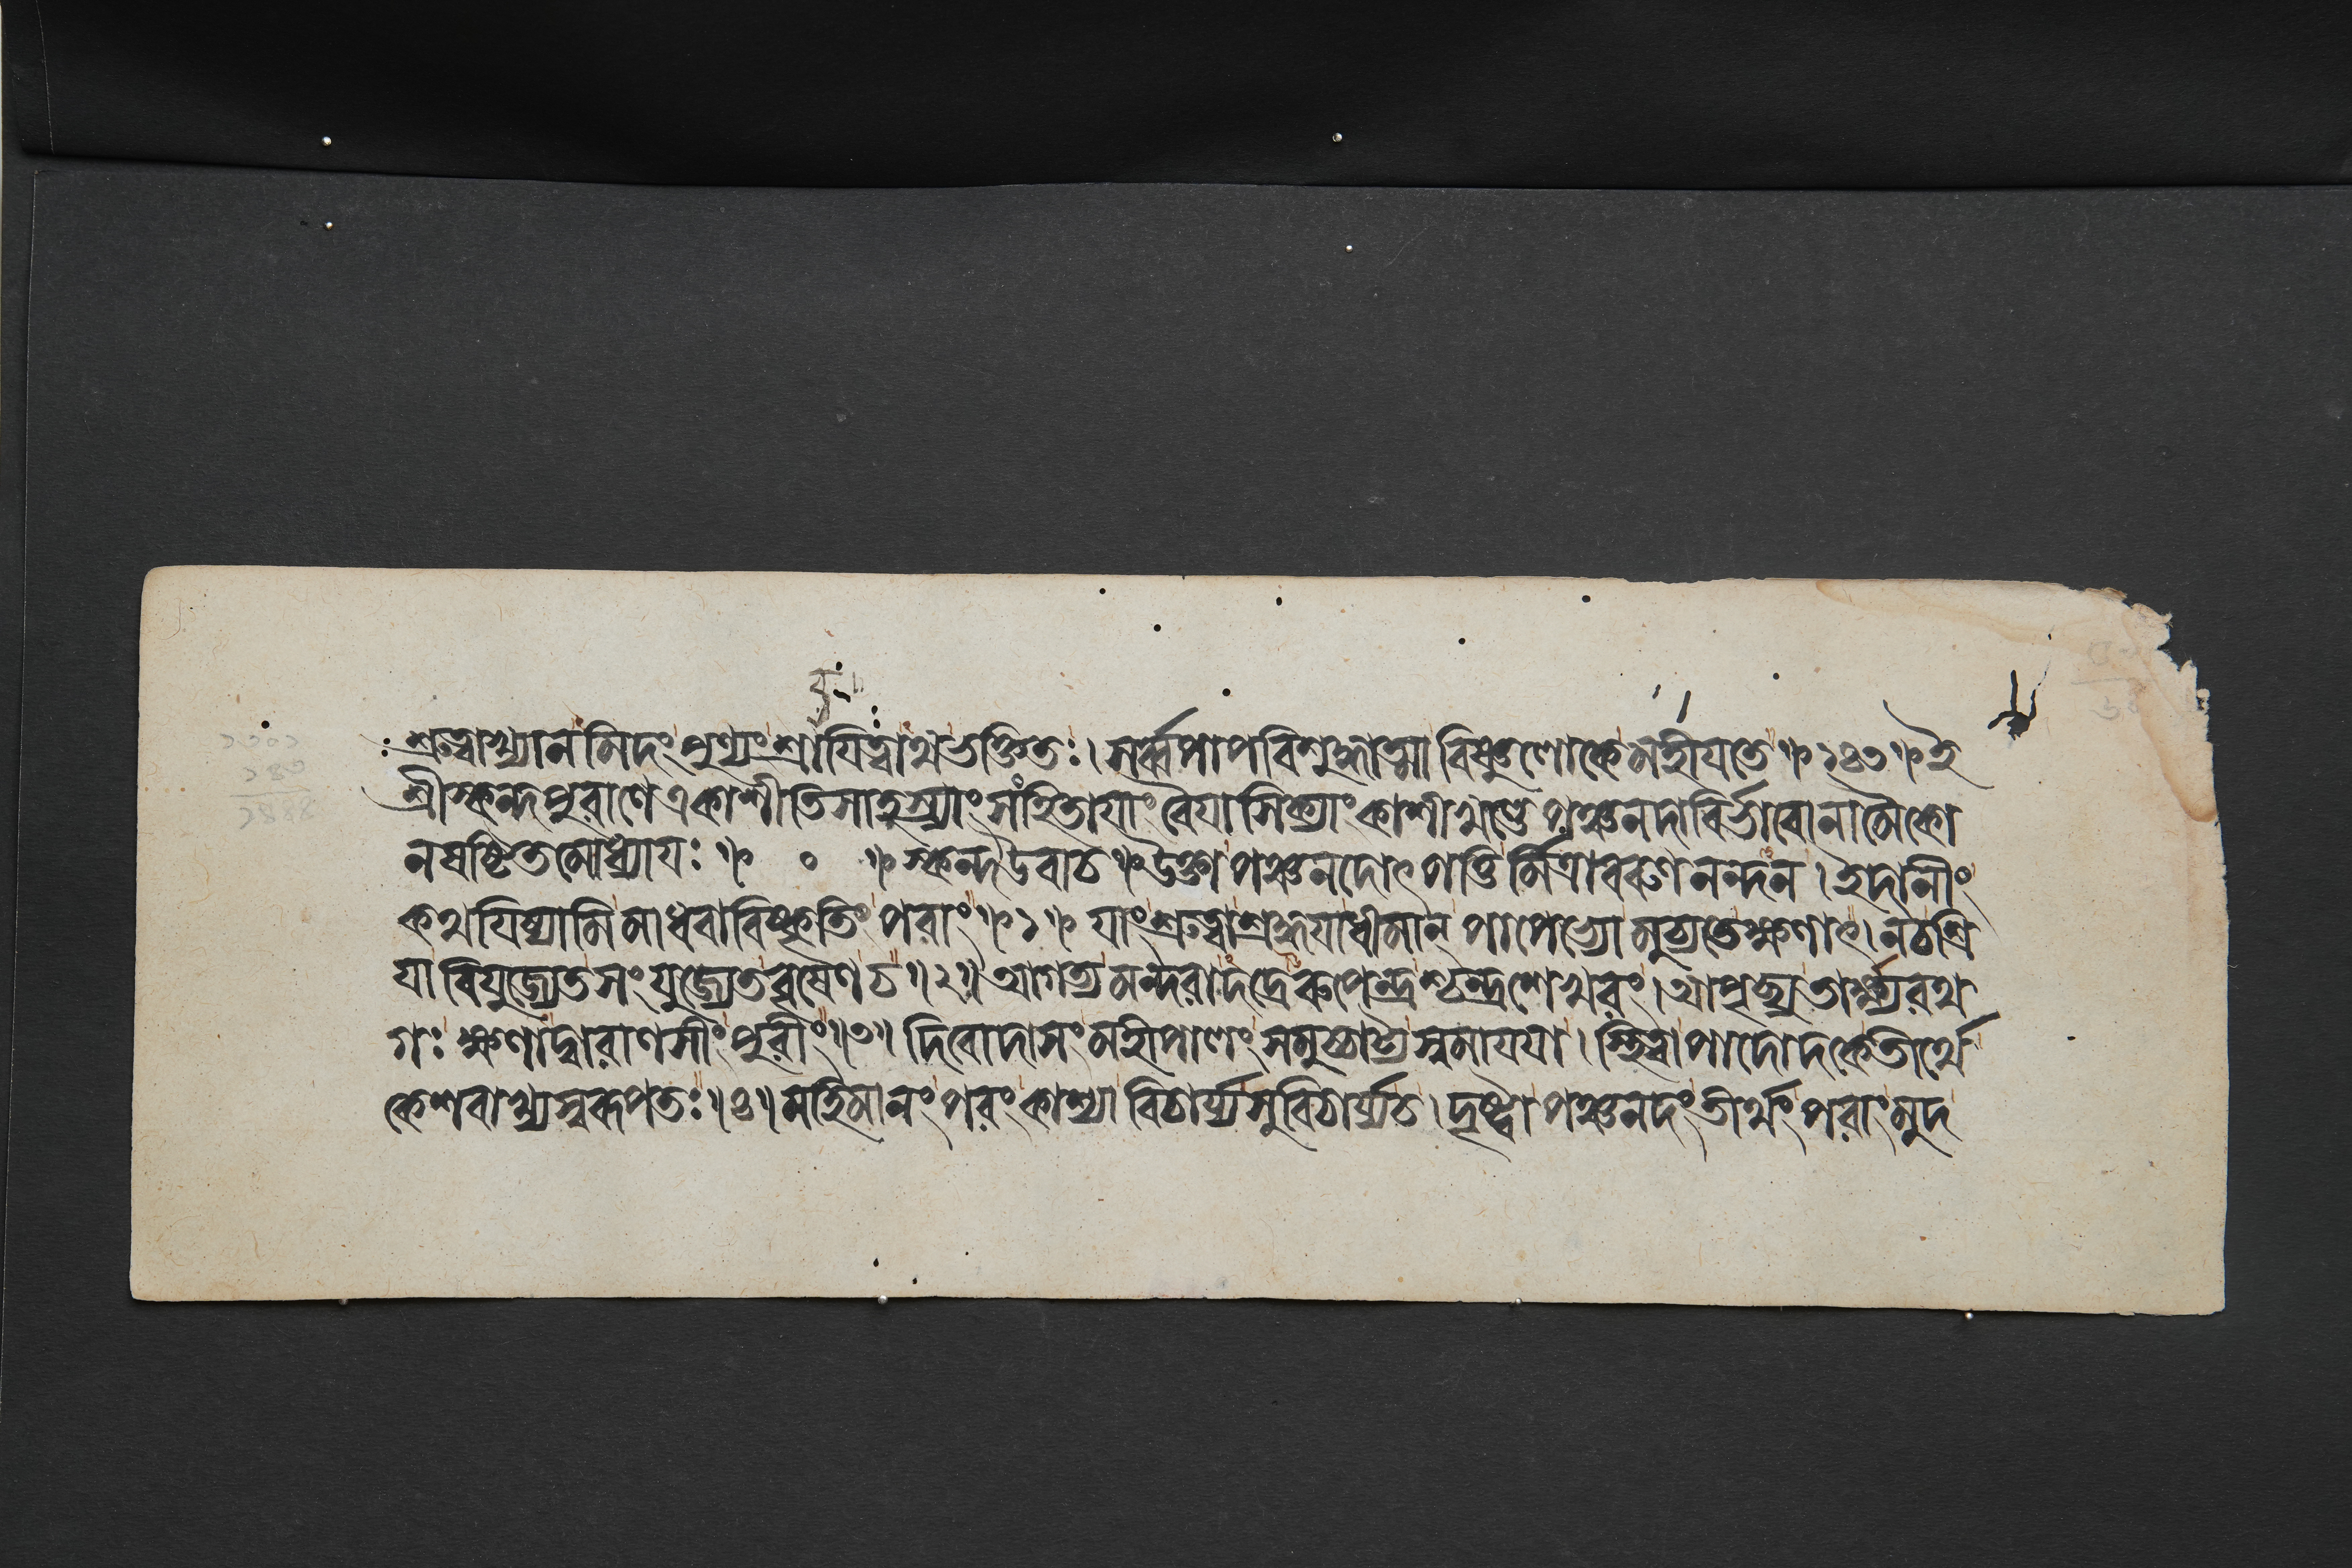 শ্রুত্বাখ্যানমিদং পুণ্যং শ্রাবযিত্বাথ ভক্তিতঃ। সর্ব্বপাপবিশুদ্ধাত্মা বিষ্ণুলোকে মহীযতে ॥ ১৪৩ ॥ ই
শ্রীস্কন্দপুরাণে একাশীতিসাহস্র্যাং সংহিতাযাং বৈযাসিক্যাং কাশীখণ্ডে পঞ্চনদাবির্ভাবোনামৈকো
নষষ্টিতমোধ্যাযঃ ॥ ० ॥ স্কন্দউবাচ ॥ উক্তা পঞ্চনদোৎপত্তির্মিত্রাবরুণনন্দন। ইদানীং
কথযিষ্যামি মাধবাবিষ্কৃতিং পরাং ॥ ১ ॥ যাং শ্রুত্বা শ্রদ্ধযা ধীমান্ পাপেভ্যো মুচ্যতে ক্ষণাৎ। ন চ শ্রি
যা বিযুজ্যেত সংযুজ্যেত বৃষেণ চ ॥ ২ ॥ আগত্য মন্দরাদদ্রেরুপেন্দ্রশ্চন্দ্রশেখরং। আপৃচ্ছ্য তার্ক্ষ্যরথ
গঃ ক্ষণাদ্বারাণসীং পুরীং ॥ ৩ ॥ দিবোদাসং মহীপালং সমুচ্চাট্য স্বমাযযা। স্থিত্বা পাদোদকে তীর্থে
কেশবাখ্যস্বরূপতঃ ॥ ৪ ॥ মহিমানং পরং কাশ্যা বিচার্য্য সুবিচার্য্য চ। দৃষ্ট্বা পঞ্চনদং তীর্থং পরাং মুদ